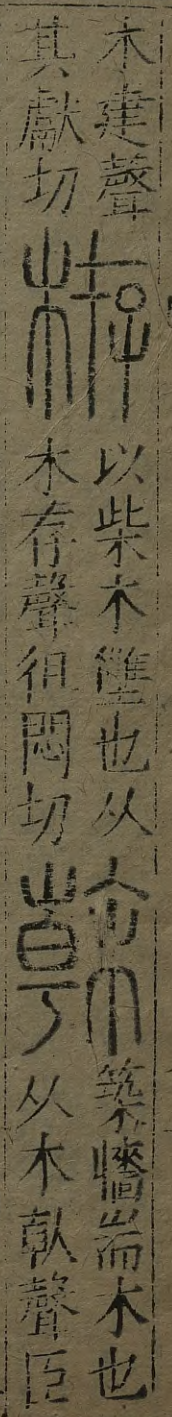 木建聲
其獻切
栫
以柴木壅也从
木存聲徂悶切
榦
築牆耑木也
从木倝聲臣